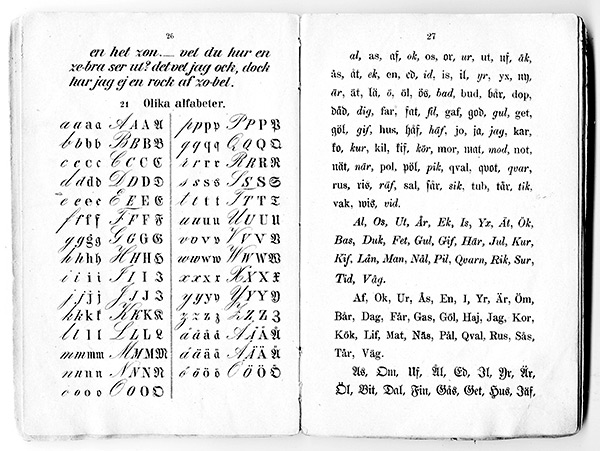 26
en het zon. — vet du hur en
ze-bra ser ut? det vet jag ock, dock
har jag ej en rock af zo-bel.
21 Olika alfabeter.
a a a a A A A A p p p p P P P P
b b b b B B B B q q q q Q Q Q Q
c c c c C C C C r r r r R R R R
d d d d D D D D s s s s S S S S
e e e e E E E E t t t t T T T T
f f f f F F F F u u u u U U U U
g g g g G G G G v v v v V V V V
h h h h H H H H w w w w W W W W
i i i i I I I I x x x x X X X X
j j j j J J J J y y y y Y Y Y Y
k k k k K K K K z z z z Z Z Z Z
l l l l L L L L å å å å Å Å Å Å
m m m m M M M M ä ä ä ä Ä Ä Ä Ä
n n n n N N N N ö ö ö ö Ö Ö Ö Ö
o o o o O O O O
27
al, as, af, ok, os, or, ur, ut, uf, åk,
ås, åt, ek, en, ed, id, is, il, yr, yx, ny,
är, ät, lä, ö, öl, ös, bad, bud, bår, dop,
dåd, dig, far, fat, fil, gaf, god, gul, get,
göl, gif, hus, haf, häf, jo, ja, jag, kar,
ko, kur, kil, tif, kör, mor, mat, mod, not,
nät, när, pol, pöl, pik, qval, qvot, qvar,
rus, ris, räf, sal, får, sik, tub, tår, tik,
vak, wis, vid.
Al, Os, Ut, År, Ek, Is, Yx, Ät, Ök,
Bas, Duk, Fet, Gul, Gif, Här, Jul, Kur,
Kif, Lån, Man, Nål, Pil, Qvarn, Rik, Sur,
Tid, Våg.
Af, Ok, Ur, Ås, En, I, Yr, Är, Öm,
Bår, Dag, Får, Gas, Göl, Haj, Jag, Kor,
Kök, Lif, Mat, Näs, Pål, Qval, Rus, Sås,
Tår, Väg.
As, Om, Uf, Ål, Ed, Il, Yr, Är,
Öl, Bit, Dal, Fin, Gås, Get, Hus, Jäf,